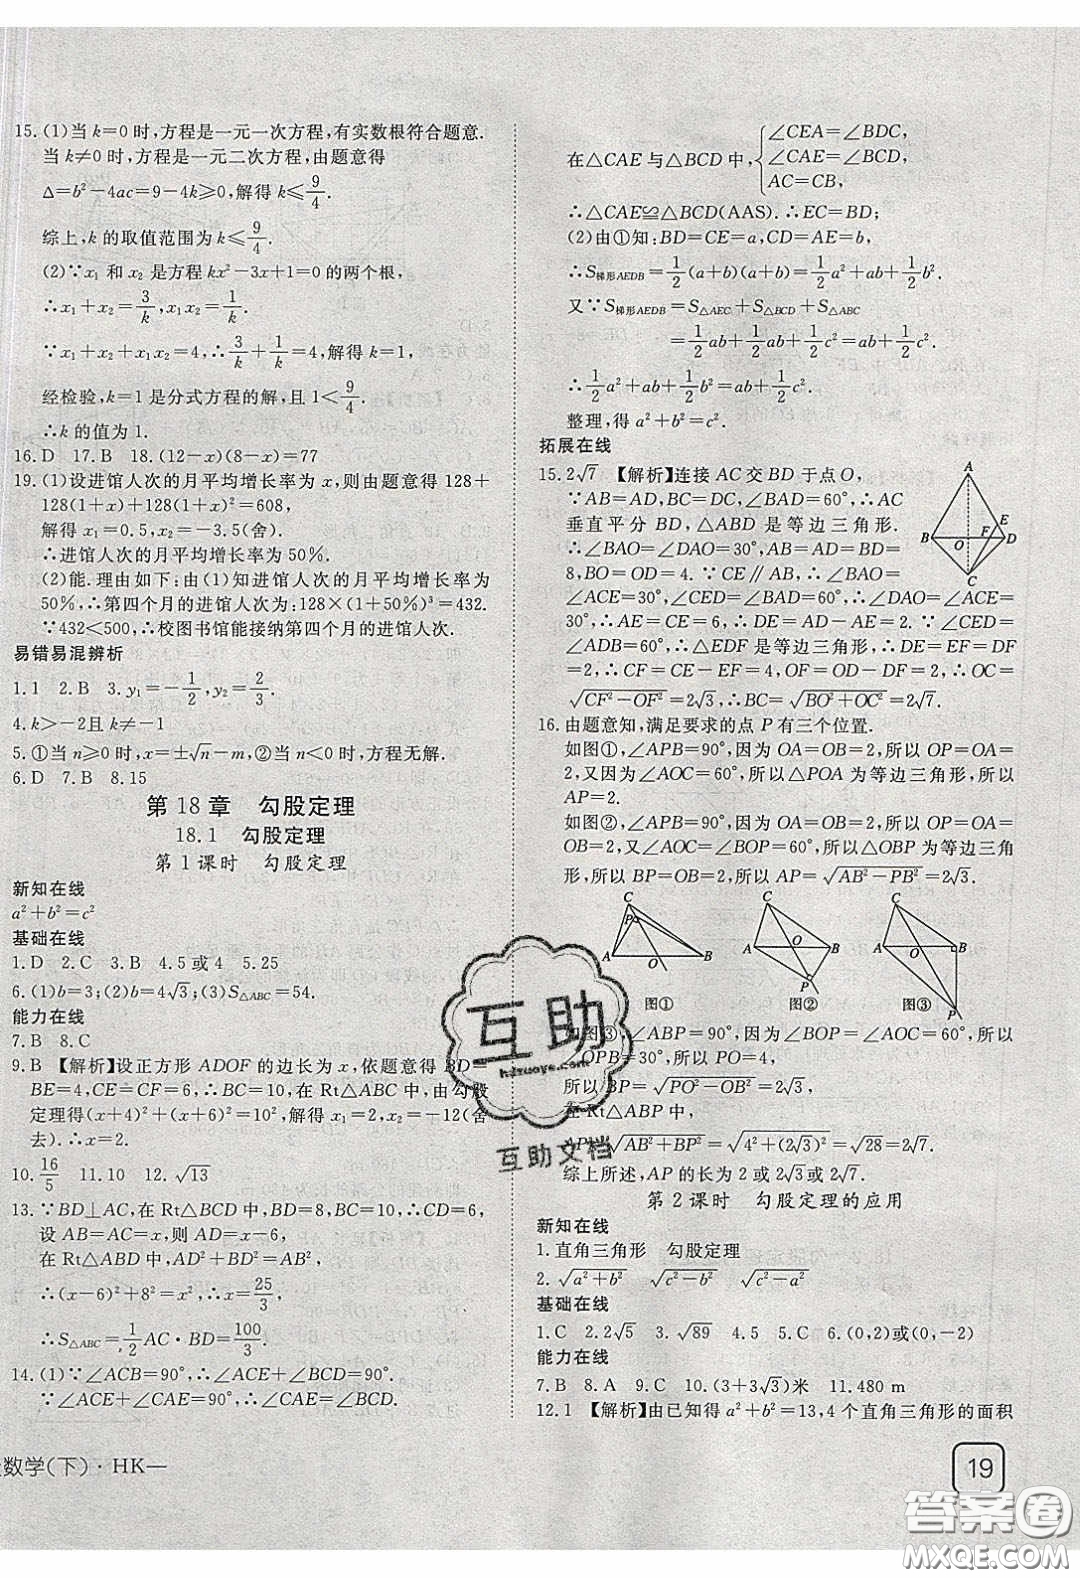 15.(1)当k=0时,方程是一元一次方程,有实数根符合题意.
当k≠0时,方程是一元二次方程,由题意得
Δ=b²-4ac=9-4k≥0,解得k≤9/4.
综上,k的取值范围为k≤9/4.
(2)∵x₁和x₂是方程kx²-3x+1=0的两个根,
∴x₁+x₂=3/k,x₁x₂=1/k.
∵x₁+x₂+x₁x₂=4,∴3/k+1/k=4,解得k=1.
经检验,k=1是分式方程的解,且1<9/4.
∴k的值为1.
16.D 17.B 18.(12-x)(8-x)=77
19.(1)设进馆人次的月平均增长率为x,依题意得128+
128(1+x)+128(1+x)²=608,
解得x₁=0.5,x₂=-3.5(舍).
∴进馆人次的月平均增长率为50%.
(2)能.理由如下:由(1)知进馆人次的月平均增长率为
50%,∴第四个月的进馆人次为:128×(1+50%)³=432.
∵432<500,∴校图书馆能接纳第四个月的进馆人次.
易错易混辨析
1.1 2.B 3.y₁=-1/2,y₂=2/3.
4.k>-2且k≠-1
5.①当n≥0时,x=±√n-m,②当n<0时,方程无解.
6.D 7.B 8.15
第18章 勾股定理
18.1 勾股定理
第1课时 勾股定理
新知在线
a²+b²=c²
基础在线
1.D 2.C 3.B 4.5或4 5.25
6.(1)b=3;(2)b=4√3;(3)S△ABC=54.
能力在线
7.B 8.C
9.B 【解析】设正方形ADOF的边长为x,依题意得BD=
BE=4,CE=CF=6,∴BC=10,在Rt△ABC中,由勾股
定理得(x+4)²+(x+6)²=10²,解得x₁=2,x₂=-12(舍
去).∴x=2.
10.16/5 11.10 12.√13
13.∵BD⊥AC,在Rt△BCD中,BD=8,BC=10,∴CD=6,
设AB=AC=x,则AD=x-6,
在Rt△ABD中,AD²+BD²=AB²,
∴(x-6)²+8²=x²,∴x=25/3,
∴S△ABC=1/2AC·BD=100/3.
14.(1)∵∠ACB=90°,∴∠ACE+∠BCD=90°.
∵∠ACE+∠CAE=90°,∴∠CAE=∠BCD.
级数学(下)·HK一
在△CAE与△BCD中,{∠CEA=∠BDC,
∠CAE=∠BCD,
AC=CB,
∴△CAE≌△BCD(AAS).∴EC=BD;
(2)由①知:BD=CE=a,CD=AE=b,
∴S梯形AEDB=1/2(a+b)(a+b)=1/2a²+ab+1/2b².
又∵S梯形AEDB=S△AEC+S△BCD+S△ABC
=1/2ab+1/2ab+1/2c²=ab+1/2c².
∴1/2a²+ab+1/2b²=ab+1/2c².
整理,得a²+b²=c².
拓展在线
15.2√7 【解析】连接AC交BD于点O,
∵AB=AD,BC=DC,∠BAD=60°,∴AC
垂直平分BD,△ABD是等边三角形.
∴∠BAO=∠DAO=30°,AB=AD=BD=
8,BO=OD=4.∵CE∥AB,∴∠BAO=
∠ACE=30°,∠CED=∠BAD=60°,∴∠DAO=∠ACE=
30°,∴AE=CE=6,∴DE=AD-AE=2.∵∠CED=
∠ADB=60°,∴△EDF是等边三角形,∴DE=EF=DF
=2,∴CF=CE-EF=4,OF=OD-DF=2,∴OC=
√CF²-OF²=2√3,∴BC=√BO²+OC²=2√7.
A
B
O
F
E
D
C
16.由题意知,满足要求的点P有三个位置.
如图①,∠APB=90°,因为OA=OB=2,所以OP=OA=
2,又因为∠AOC=60°,所以△POA为等边三角形,所以
AP=2.
如图②,∠APB=90°,因为OA=OB=2,所以OP=OA=
OB=2,又因为∠AOC=∠BOP=60°,所以△OBP为等边三角
形,所以BP=OB=OA=2,所以AP=√AB²-PB²=2√3.
C
P
A
O
B
图①
C
A
O
B
P
图②
C
A
O
B
P
图③
如图③,∠ABP=90°,因为∠BOP=∠AOC=60°,所以
∠OPB=30°,所以PO=4,
所以BP=√PO²-OB²=2√3,
在Rt△ABP中,
AP=√AB²+BP²=√4²+(2√3)²=√28=2√7.
综上所述,AP的长为2或2√3或2√7.
第2课时 勾股定理的应用
新知在线
1.直角三角形 勾股定理
2.√a²+b² √c²-b² √c²-a²
基础在线
1.C 2.2√5 3.√89 4.5 5.C 6.(0,2)或(0,-2)
能力在线
7.B 8.A 9.C 10.(3+3√3)米 11.480 m
12.1 【解析】由已知得a²+b²=13,4个直角三角形的面积
19
互助
hdzuoye.com
互助文档
答案圈
MXQE.COM